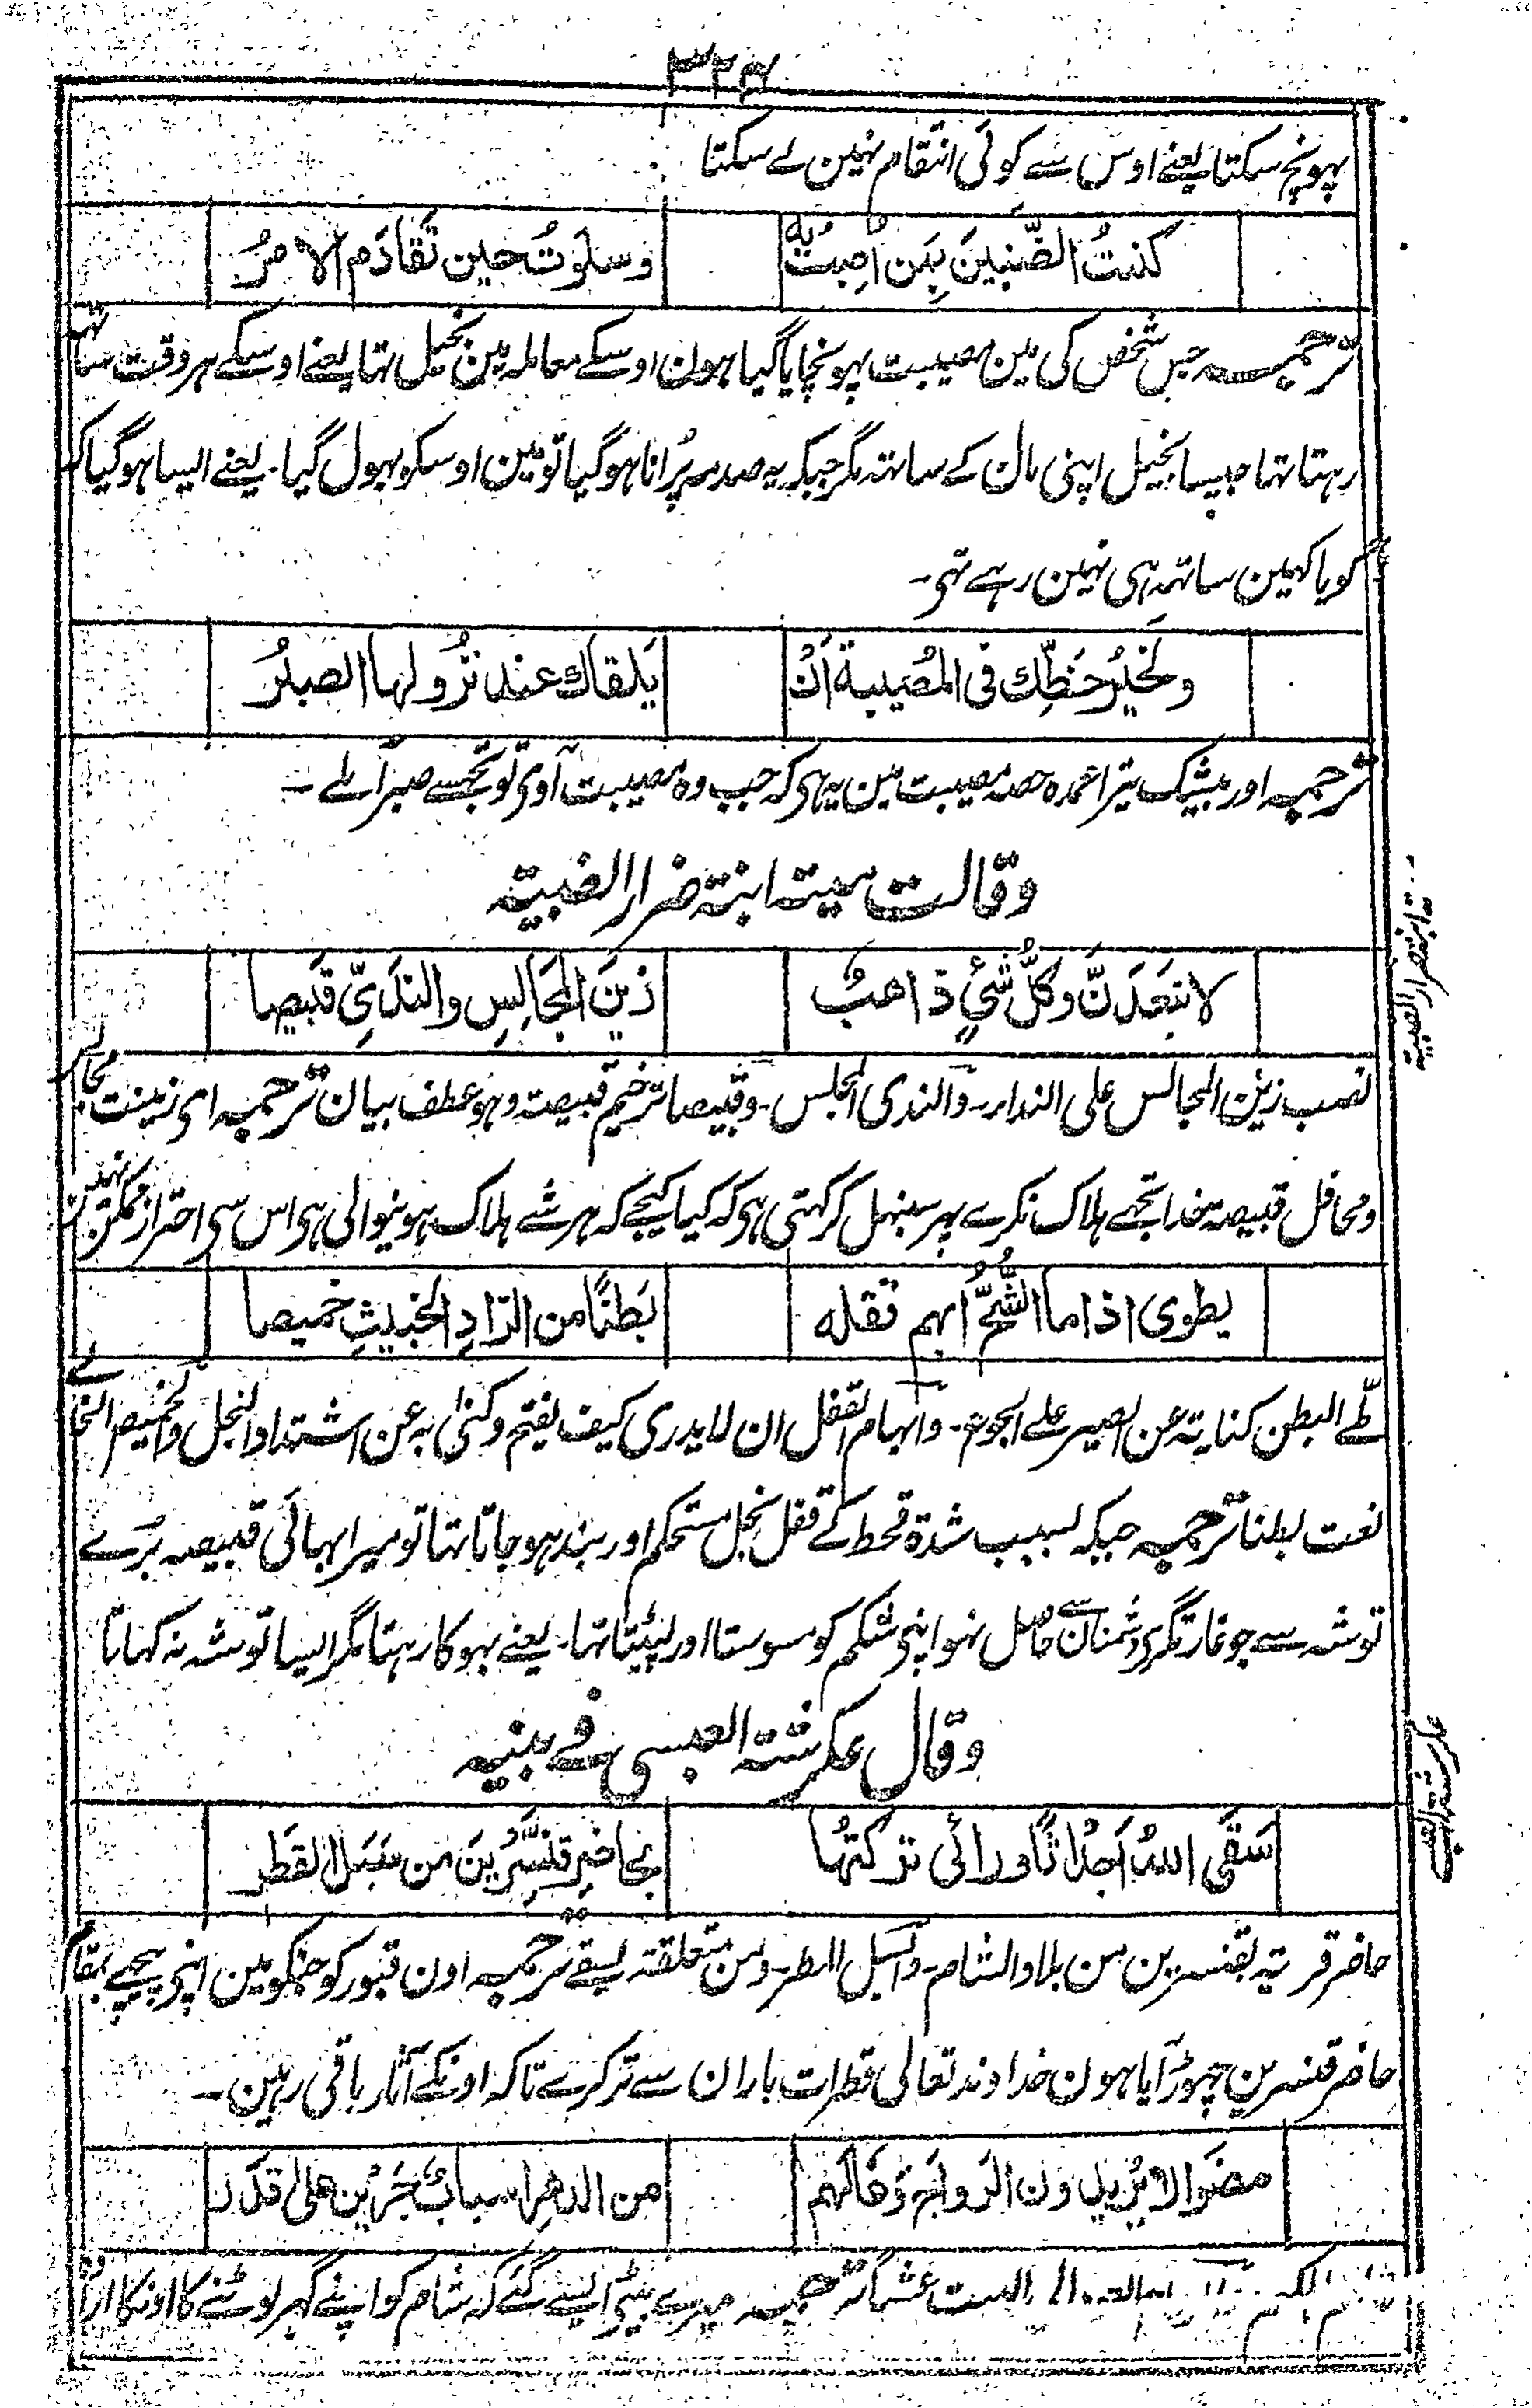 ۳۳۴
پہونچ سکتا یعنے اوس سے کوئی انتقام نہین لے سکتا
كنتُ الضّنِينَ بِمَن اُصِبتُ بِهٖ وسلوتُ حين تَقادَم الامرُ
ترجمہ جس شخص کی مین مصیبت پہونچایا گیا ہون اوسکے معاملہ مین بخیل تہا یعنے اوسکے ہر وقت ساتہہ
رہتا تہا جیسا بخیل اپنی مال کے ساتہہ مگر جبکہ یہ صدمہ پُرانا ہوگیا تو مین اوسکو بہول گیا۔ یعنے ایسا ہوگیا کہ
گویا کہین ساتہہ ہی نہین رہے تہی۔
ولَخَيرُ حَظِّك فى المُصيبة اَنْ يَلقاك عند نزُولها الصبرُ
ترجمہ اور بیشک تیرا عمدہ حصہ مصیبت مین یہ ہی کہ جب وہ مصیبت آوی تو تجہسے صبر آملے ۔
وقالت میتہ ابنتہ ضرار الضبیتہ
لا تبعَدَنَّ وكلُّ شَيٍ ذاهبٌ زَينَ المَجالِسِ والندَىِّ قَبيصا
نصب زین المجالس علی الندار۔ والندی المجلس۔ وقبیصا ترخیم قبیصتہ وہو عطف بیان ترجمہ ای زینت مجالس
ومحافل قبیصہ خدا تجہے ہلاک نکرے پہر سنبہل کر کہتی ہی کہ کیا کیجے کہ ہر شے ہلاک ہونیوالی ہی اس سی احتراز ممکن نہین
يطوى اذا ما الشُّحُّ اُبهم قفله بَطنًا من الزّادِ الخبيثِ خميصا
طے البطن کنایتہ عن الصبر علے الجوع۔ وابہام القفل ان لا یدری کیف یفتح وکنیٰ بہ عن اشتداد البخل والخمیص الخالے
نعت لبطنا ترجمہ جبکہ بسبب شدۃ قحط کے قفل بخل مستحکم اور بند ہوجاتا تہا تو میرا بہائی قبیصہ بُرے
توشہ سے جو غارتگری دشمنان سے حاصل نہو اپنی شکم کو مسوستا اور لپیٹتا تہا۔ یعنے بہوکا رہتا مگر ایسا توشہ نہ کہاتا
وقال عکرشتہ العبسی فے بنیہ
سَقَى اللهُ اَجداثًا ورائى تركتُها بحاضِرِ قنَّسرِينَ من سَبَل القَطر
حاضر قریتہ بقنسرین من بلاد الشام۔ والسبل المطر۔ ومن متعلقتہ بسقے ترجمہ اون قبور کو جنکو مین اپنی پیچہے بمقام
حاضر قنسرین چہوڑ آیا ہون خداوند تعالی قطرات باران سے تر کرے تاکہ اونکے آثار باقی رہین۔
مضَوا لا يُريدون الرواحَ وغالهم من الدهرِ اسبابٌ جَرَين على قدَر
ترجمہ میرے بیٹی ایسے گئے کہ شام کو اپنے گہر لوٹنے کا اونکا ارادہ